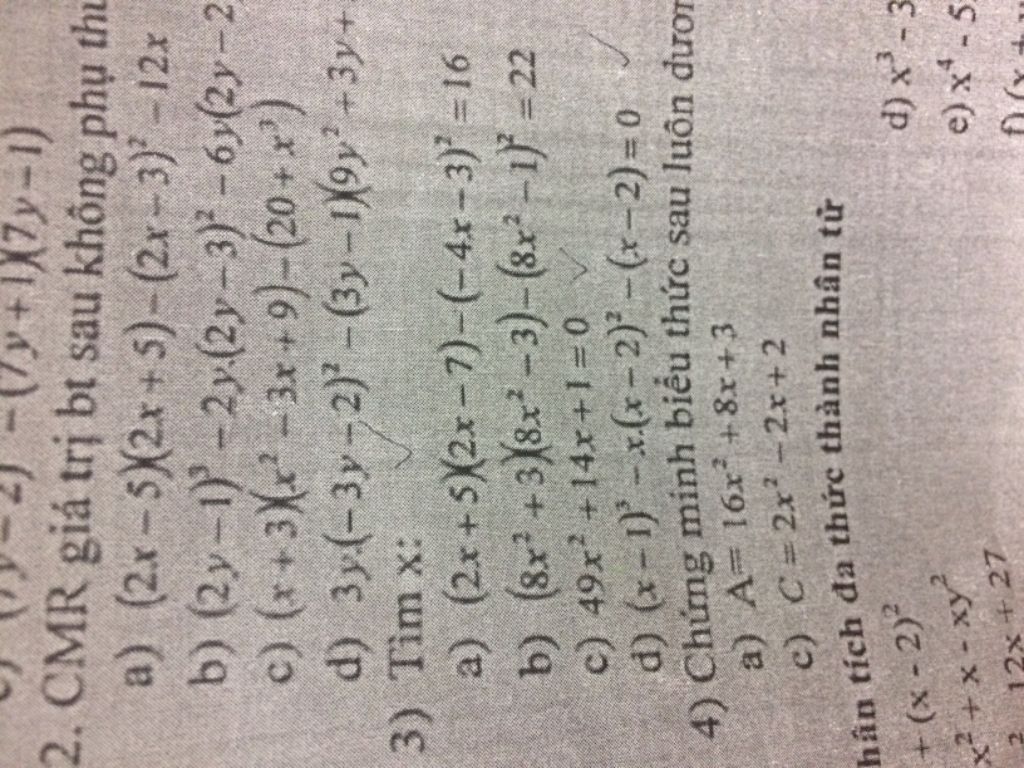 2. CMR giá trị bt sau không phụ
a) (2x − 5)(2x + 5) − (2x − 3)² − 12x
b) (2y − 1)³ − 2y.(2y − 3)² − 6y(2y − 2
c) (x + 3)(x² − 3x + 9) − (20 + x³)
d) 3y.(− 3y − 2)² − (3y − 1)(9y² + 3y +
3) Tìm x:
a) (2x + 5)(2x − 7) − (− 4x − 3)² = 16
b) (8x² + 3)(8x² − 3) − (8x² − 1)² = 22
c) 49x² + 14x + 1 = 0
d) (x − 1)³ − x.(x − 2)² − (x − 2) = 0
4) Chứng minh biểu thức sau luôn
a) A = 16x² + 8x + 3
c) C = 2x² − 2x + 2
tích đa thức thành nhân tử
+ (x - 2)² d) x³ - 3
x² + x - xy² e) x⁴ - 5
12x + 27